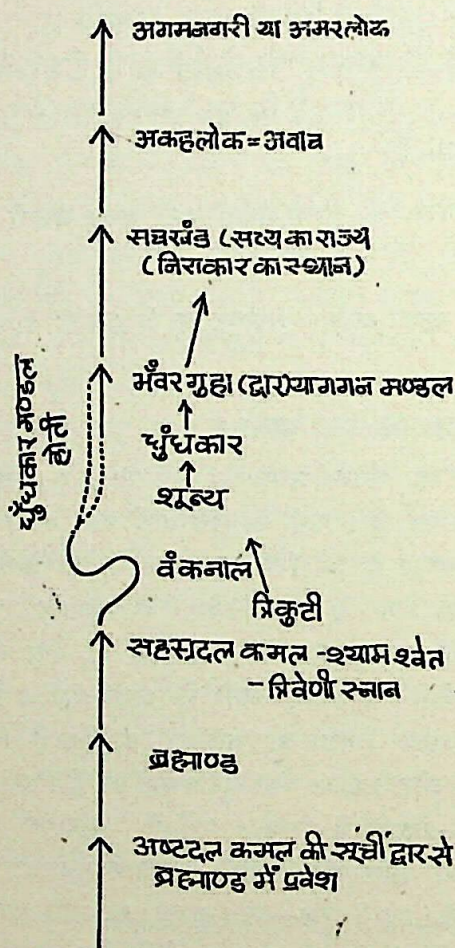 अगमनगरी या अमरलोक
अकहलोक=अवाच
सचखंड (सत्य का राज्य
(निराकार का स्थान)
भँवर गुहा (द्वार) या गगन मण्डल
धुँधकार
शून्य
धुँधकार मण्डल
होती
वंकनाल
त्रिकुटी
सहस्रदल कमल -श्याम श्वेत
-त्रिवेणी स्नान
ब्रह्माण्ड
अष्टदल कमल की सूंची द्वार से
ब्रह्माण्ड में प्रवेश